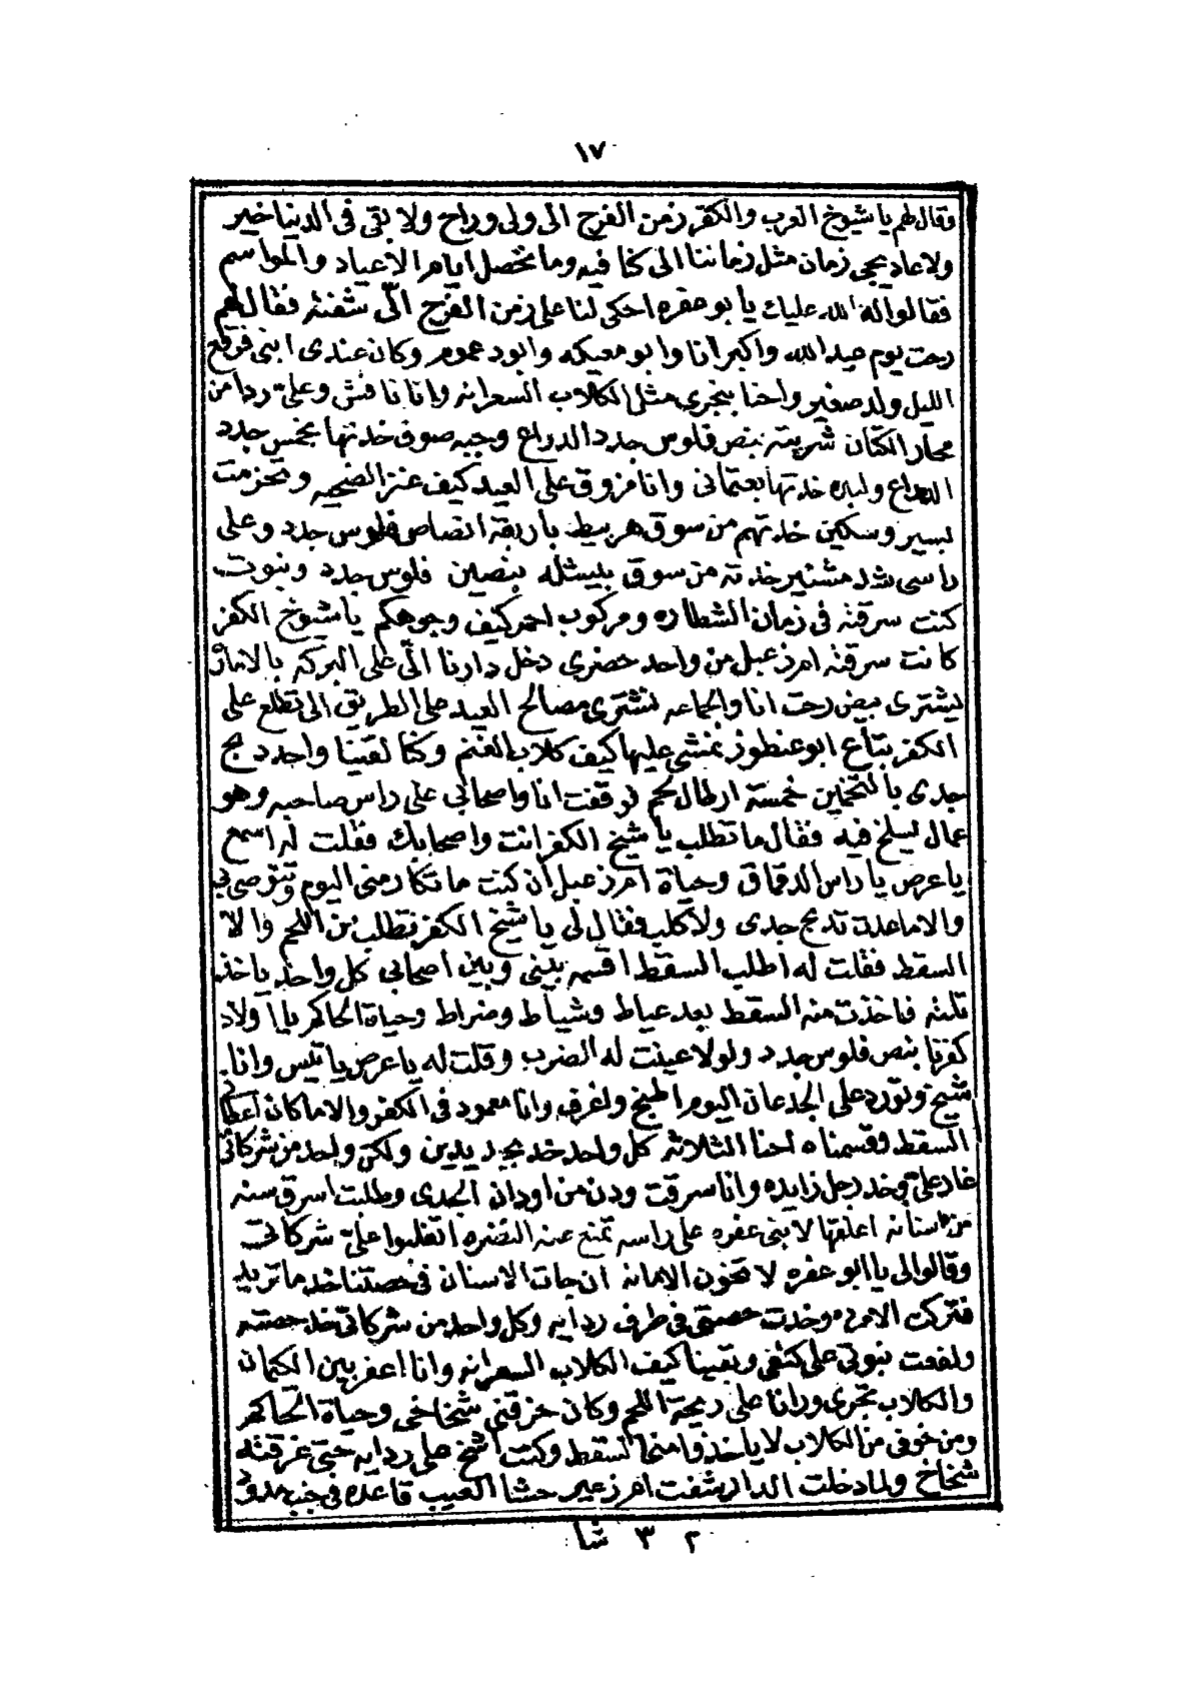 ١٧
وقال لهم يا شيوخ العرب والكفر زمن الفرح الى ولى وراح ولا بقى فى الدنيا خير
ولا عاد يجى زمان مثل زماننا الى كنا فيه وما يحصل ايام الاعياد والمواسم
فقالوا له الله عليك يا بو عفره احكى لنا على زمن الفرح الى شفته فقال لهم
رحت يوم عيد الله واكبر انا وابو معيكه وابو دعموم وكان عندى ابنى فرقع
الليل ولد صغير واحنا بنجرى مثل الكلاب السعرانه وانا نافش وعلى ردا من
محار الكتان شريته بنص فلوس جدد الدراع وجبه صوف خدتها بخمس جدد
الدراع ولبده خدتها بعتمانى وانا مزوق على العيد كيف عنز الضحيه وتحزمت
بسير وسكين خدتهم من سوق هربيط باربعة انصاص فلوس جدد وعلى
راسى شد مشنير خدته من سوق بلبيس بنصين فلوس جدد ونبوت
كنت سرقته فى زمان الشطاره ومركوب احمر كيف وجوهكم يا شيوخ الكفر
كانت سرقته امرزعبل من واحد حضرى دخل دارنا الى على البركه بالاماره
يشترى بيض رحت انا والجماعه نشترى مصالح العيد على الطريق الى تطلع على
الكفر بتاع ابو عنطوز نمشى عليها كيف كلاب الغنم وكنا لقينا واحد دبح
جدى بالتخمين خمسة ارطال لحم فوقفت انا واصحابى على راس صاحبه وهو
عمال يسلخ فيه فقال ما تطلب يا شيخ الكفر انت واصحابك فقلت له اسمع
يا عرص يا راس الدقماق وحياة امرزعبل ان كنت ما تكارمنى اليوم وتتوصى بى
والا ما عدت تدبح جدى ولا كلب فقال لى يا شيخ الكفر تطلب من اللحم والا
السقط فقلت له اطلب السقط اقسمه بينى وبين اصحابى كل واحد ياخذ
تلته فاخذت منه السقط بعد عياط وشياط وضراط وحياة الحاكم يا اولاد
كفرنا بنص فلوس جدد ولولا عينت له الضرب وقلت له يا عرص يا تيس وانا
شيخ وتورد على الجدعان اليوم المطبخ ولغرفه وانا معمود فى الكفر والا ما كان اعطانى
السقط وقسمناه احنا الثلاثه كل واحد خد بجديدين ولكن واحد من شركاتى
غار على وخد رجل زايده وانا سرقت ودن من اودان الجدى وطلبت اسرق سنه
من اسنانه اعلقها لابنى عفره على راسه تمنع عنه النضره اتغلبوا على شركاتى
وقالوا لى يا ابو عفره لا تخون الامانه ان جات الاسنان فى حصتنا خد ما تريد
فتركت الامره وخدت حصتى فى طرف ردايه وكل واحد من شركاتى خد حصته
ولفعت نبوتى على كتفى وبقينا كيف الكلاب السعرانه وانا اعفر بين الكيمان
والكلاب تجرى ورانا على ريحة اللحم وكان حزقنى شخاخى وحياة الحاكم
ومن خوفى من الكلاب لا ياخذوا منى السقط وكنت اشخ على ردايه حتى غرقته
شخاخ ولما دخلت الدار شفت امرزعبر حشا العيب قاعده فى جنب مدود
٢ ٣ شا